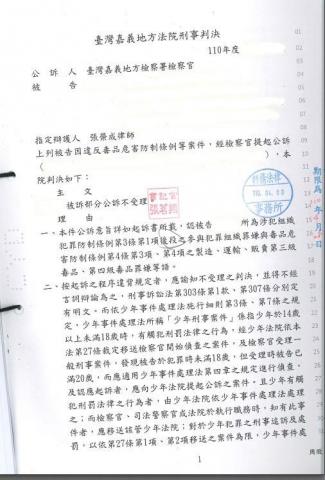 臺灣嘉義地方法院刑事判決
110年度
公訴人 臺灣嘉義地方檢察署檢察官
被告
指定辯護人 張榮成律師
上列被告因違反毒品危害防制條例等案件，經檢察官提起公訴
（ ），本
院判決如下：
主文
被訴部分公訴不受理
理由
一、本件公訴意旨詳如起訴書所載，認被告 所為涉犯組織
犯罪防制條例第3條第1項後段之參與犯罪組織罪嫌與毒品危
害防制條例第4條第3項、第4項之製造、運輸、販賣第三級
毒品、第四級毒品罪嫌等語。
二、按起訴之程序違背規定者，應諭知不受理之判決，且得不經
言詞辯論為之，刑事訴訟法第303條第1款、第307條分別定
有明文。而依少年事件處理法施行細則第3條、第7條之規
定，少年事件處理法所稱「少年刑事案件」係指少年於14歲
以上未滿18歲時，有觸犯刑罰法律之行為，經少年法院依本
法第27條裁定移送檢察官開始偵查之案件，及檢察官受理一
般刑事案件，發現被告於犯罪時未滿18歲，但受理時被告已
滿20歲，而應適用少年事件處理法第四章之規定進行偵查，
及認應起訴者，應向少年法院提起公訴之案件。且少年有觸
犯刑罰法律之行為者，由少年法院依少年事件處理法處理
之；而檢察官、司法警察官或法院於執行職務時，知有此事
件者，應移送該管少年法院；對於少年犯罪之刑事追訴及處
罰，以依第27條第1項、第2項移送之案件為限，少年事件處
1
書記官
事務所